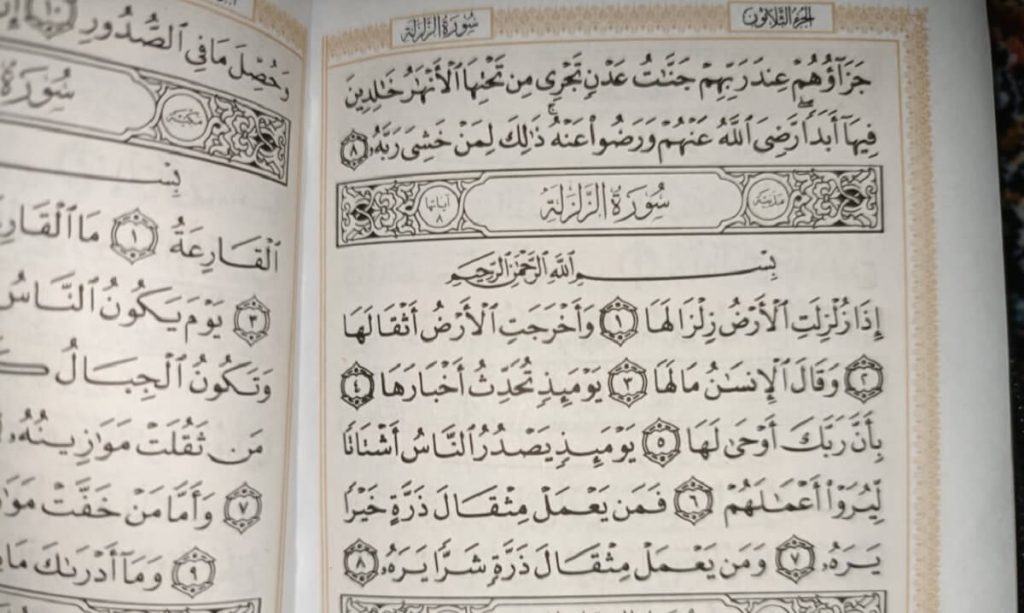 الجزء الثلاثون
سُورَةُ الزَّلْزَلَةِ
جَزَآؤُهُمْ عِندَ رَبِّهِمْ جَنَّٰتُ عَدْنٍ تَجْرِى مِن تَحْتِهَا ٱلْأَنْهَٰرُ خَٰلِدِينَ
فِيهَآ أَبَدًا ۖ رَّضِىَ ٱللَّهُ عَنْهُمْ وَرَضُوا۟ عَنْهُ ۚ ذَٰلِكَ لِمَنْ خَشِىَ رَبَّهُۥ ٨
مدنية سُورَةُ الزَّلْزَلَةِ آياتها ٨
بِسْمِ ٱللَّهِ ٱلرَّحْمَٰنِ ٱلرَّحِيمِ
إِذَا زُلْزِلَتِ ٱلْأَرْضُ زِلْزَالَهَا ١ وَأَخْرَجَتِ ٱلْأَرْضُ أَثْقَالَهَا
٢ وَقَالَ ٱلْإِنسَٰنُ مَا لَهَا ٣ يَوْمَئِذٍ تُحَدِّثُ أَخْبَارَهَا ٤
بِأَنَّ رَبَّكَ أَوْحَىٰ لَهَا ٥ يَوْمَئِذٍ يَصْدُرُ ٱلنَّاسُ أَشْتَاتًا
لِّيُرَوْا۟ أَعْمَٰلَهُمْ ٦ فَمَن يَعْمَلْ مِثْقَالَ ذَرَّةٍ خَيْرًا
يَرَهُۥ ٧ وَمَن يَعْمَلْ مِثْقَالَ ذَرَّةٍ شَرًّا يَرَهُۥ ٨
وَحُصِّلَ مَا فِى ٱلصُّدُورِ ١٠
سُورَةُ
مكية
بِسْـ
ٱلْقَارِعَةُ ١ مَا
٣ يَوْمَ يَكُونُ ٱلنَّاسُ
وَتَكُونُ ٱلْجِبَالُ
مَن ثَقُلَتْ مَوَٰزِينُهُۥ
٧ وَأَمَّا مَنْ خَفَّتْ
٩ وَمَآ أَدْرَىٰكَ مَا